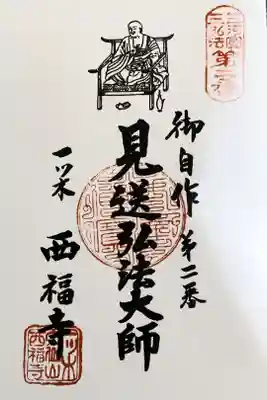 御自作 第二番
見送弘法大師
一ツ木 西福寺
西福寺